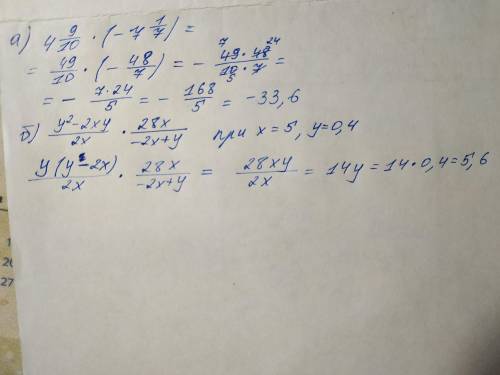 а) 4 9/10 · (−7 1/7) =
= 49/10 · (−48/7) = − 49 · 48/10 · 7 = 7 24 5
= − 7·24/5 = − 168/5 = −33,6
б) y²−2xy/2x · 28x/−2x+y при x=5, y=0,4
y(y−2x)/2x · 28x/−2x+y = 28xy/2x = 14y = 14·0,4=5,6